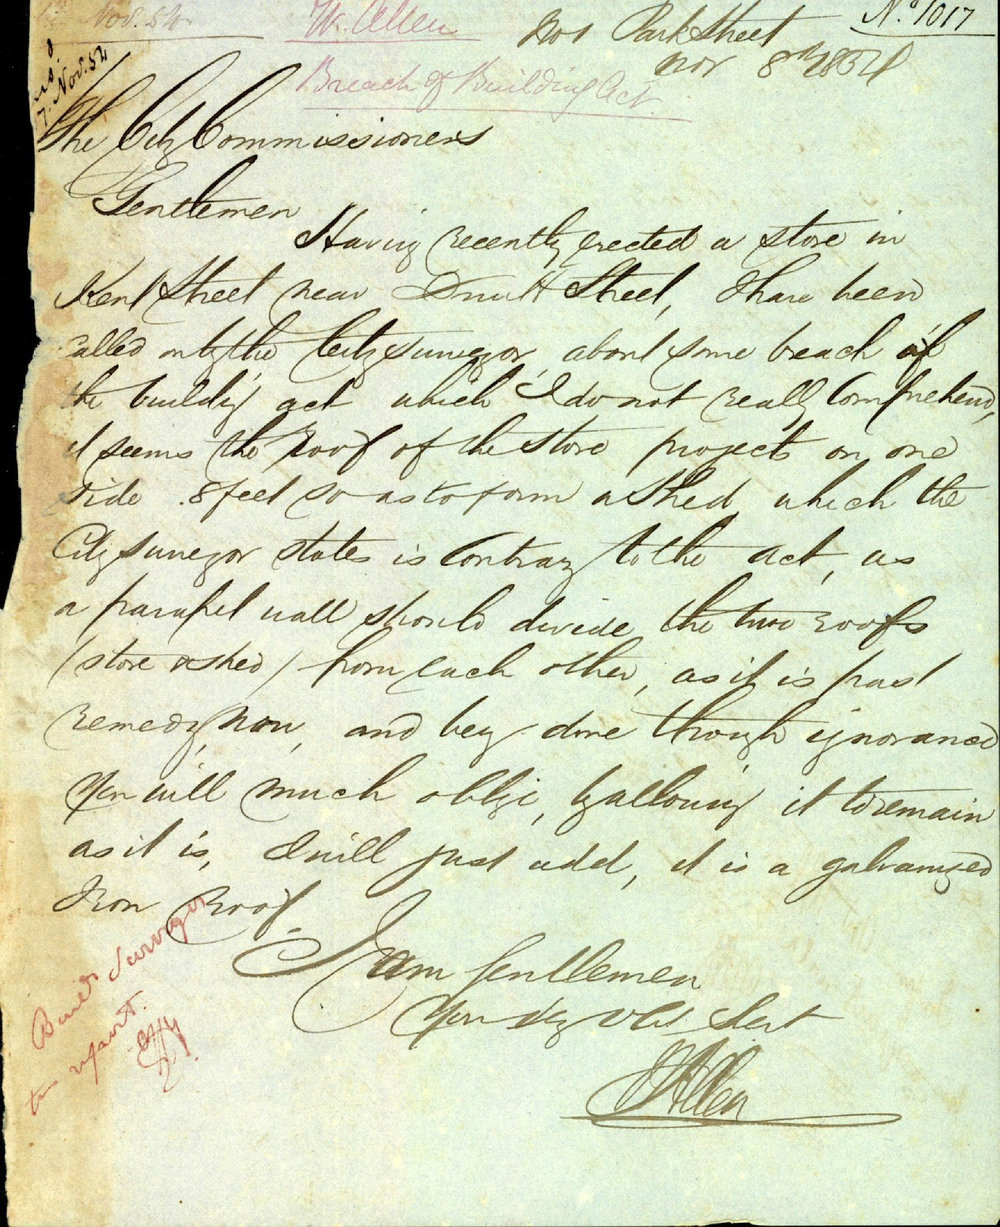 Nov. 54
W. Allen
No 1017
Park Street
Nov 8th 1854
7. Nov. 54
Breach of Building Act.
The City Commissioners
Gentlemen
Having recently erected a store in
Kent Street near Druitt Street, I have been
called on by the City Surveyor, about some breach of
the building act which I do not really Comprehend,
it seems the Roof of the store projects on one
side 8 feet so as to form a Shed which the
City Surveyor states is Contrary to the act, as
a parapet wall should divide the two roofs
(store & shed) from each other, as it is past
remedy now, and being done through ignorance
you will much oblige, by allowing it to remain
as it is, I will just add, it is a galvanized
Iron Roof.
I am Gentlemen
Your Very Obt Servt
Allen
Surveyor
to report.